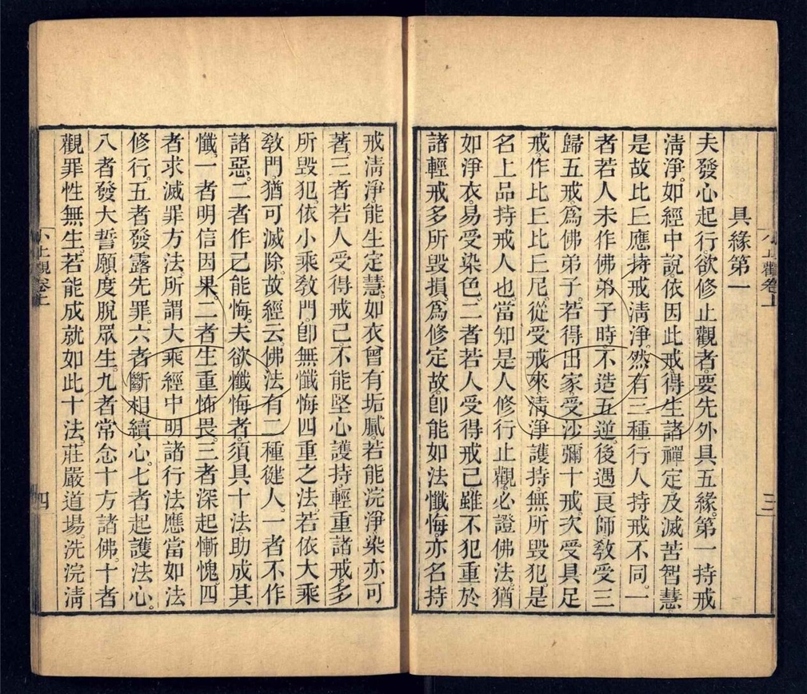 小止觀卷上
三
具緣第一
夫發心起行欲修止觀者要先外具五緣。第一持戒
淸淨。如經中說。依因此戒。得生諸禪定及滅苦智慧
是故比丘應持戒淸淨。然有三種行人持戒不同。一
者若人未作佛弟子時。不造五逆後遇良師敎受三
歸五戒爲佛弟子。若得出家受沙彌十戒。次受具足
戒作比丘比丘尼。從受戒來淸淨護持無所毀犯。是
名上品持戒人也。當知是人修行止觀必證佛法猶
如淨衣。易受染色。二者若人受得戒已雖不犯重於
諸輕戒多所毀損。爲修定故卽能如法懺悔。亦名持
戒淸淨能生定慧。如衣曾有垢膩若能浣淨染亦可
著三者若人受得戒已。不能堅心護持。輕重諸戒多
所毀犯。依小乘敎門卽無懺悔四重之法。若依大乘
敎門。猶可滅除。故經云。佛法有二種健人。一者不作
諸惡。二者作已能悔。夫欲懺悔者。須具十法助成其
懺。一者明信因果。二者生重怖畏。三者深起慚愧四
者求滅罪方法。所謂大乘經中明諸行法應當如法
修行。五者發露先罪。六者斷相續心。七者起護法心。
八者發大誓願度脫眾生。九者常念十方諸佛。十者
觀罪性無生若能成就如此十法。莊嚴道場。洗浣淸
小止觀卷上
四